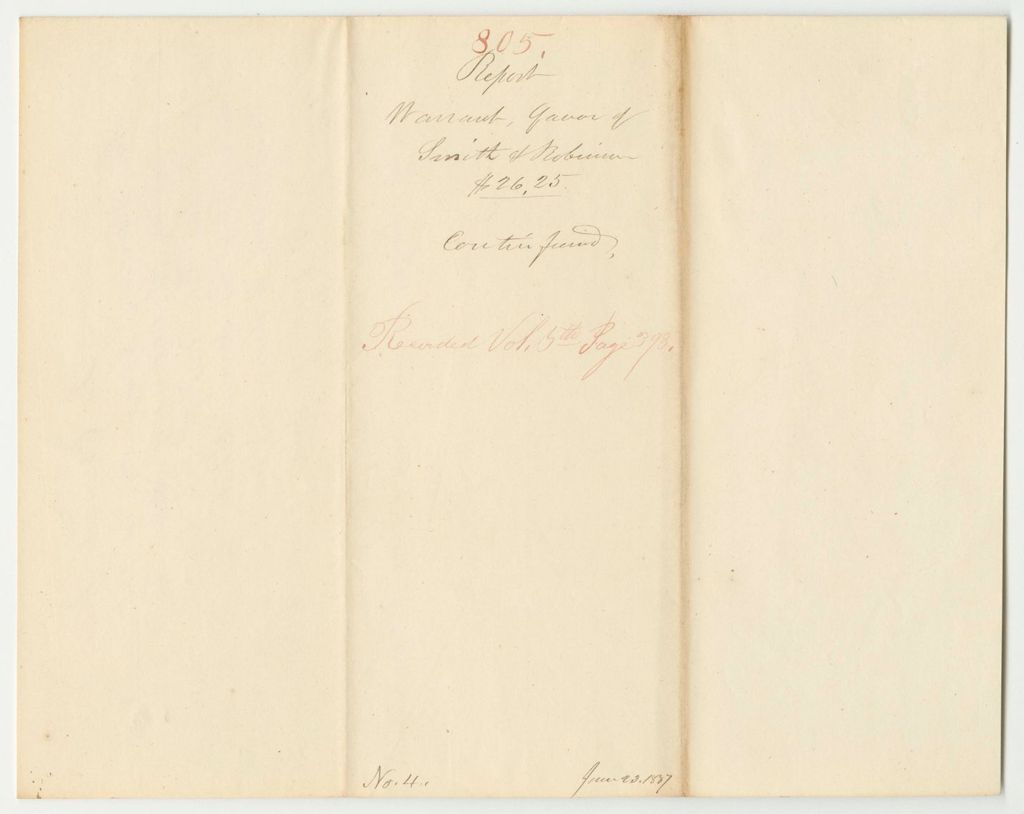 805.
Report
Warrant, favor of
Smith & Robinson
$26,25.
Contin fund,
Recorded Vol. 5th Page 393.
No. 4.
June 23. 1837